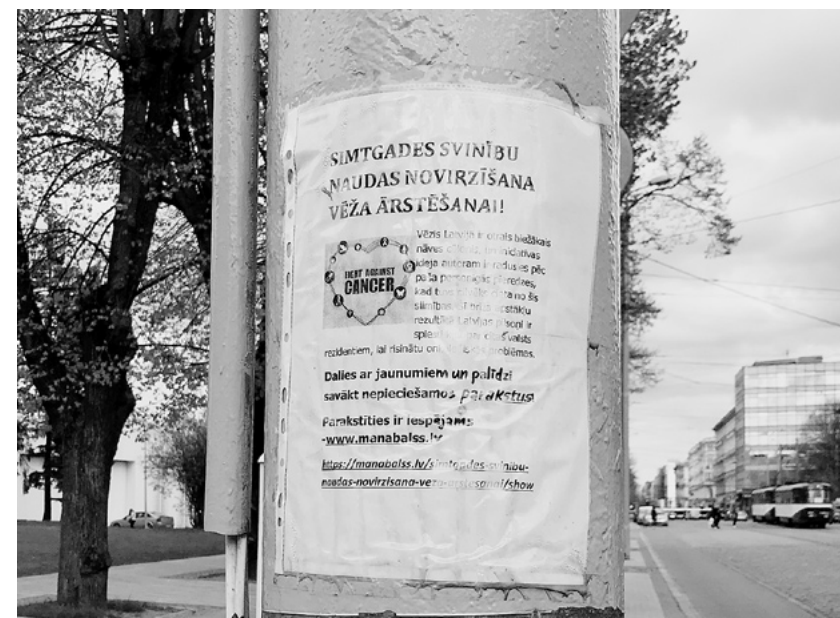 SIMTGADES SVINĪBU
NAUDAS NOVIRZĪŠANA
VĒŽA ĀRSTĒŠANAI!
FIGHT AGAINST
CANCER
Vēzis Latvijā ir otrais biežākais
nāves cēlonis, un iniciatīvas
ideja autoram ir radusies pēc
paša personīgās pieredzes,
kad tuvs cilvēks mira no šīs
slimības. Šī brīža apstākļu
rezultātā Latvijas pilsoņi ir
spiesti valsts
rezidentiem, lai risinātu problēmas.
Dalies ar jaunumiem un palīdzi
savākt nepieciešamos parakstus
Parakstīties ir iespējams
-www.manabalss.lv
https://manabalss.lv/simtgades-svinibu-
naudas-novirzisana-veza-arstesanai/show